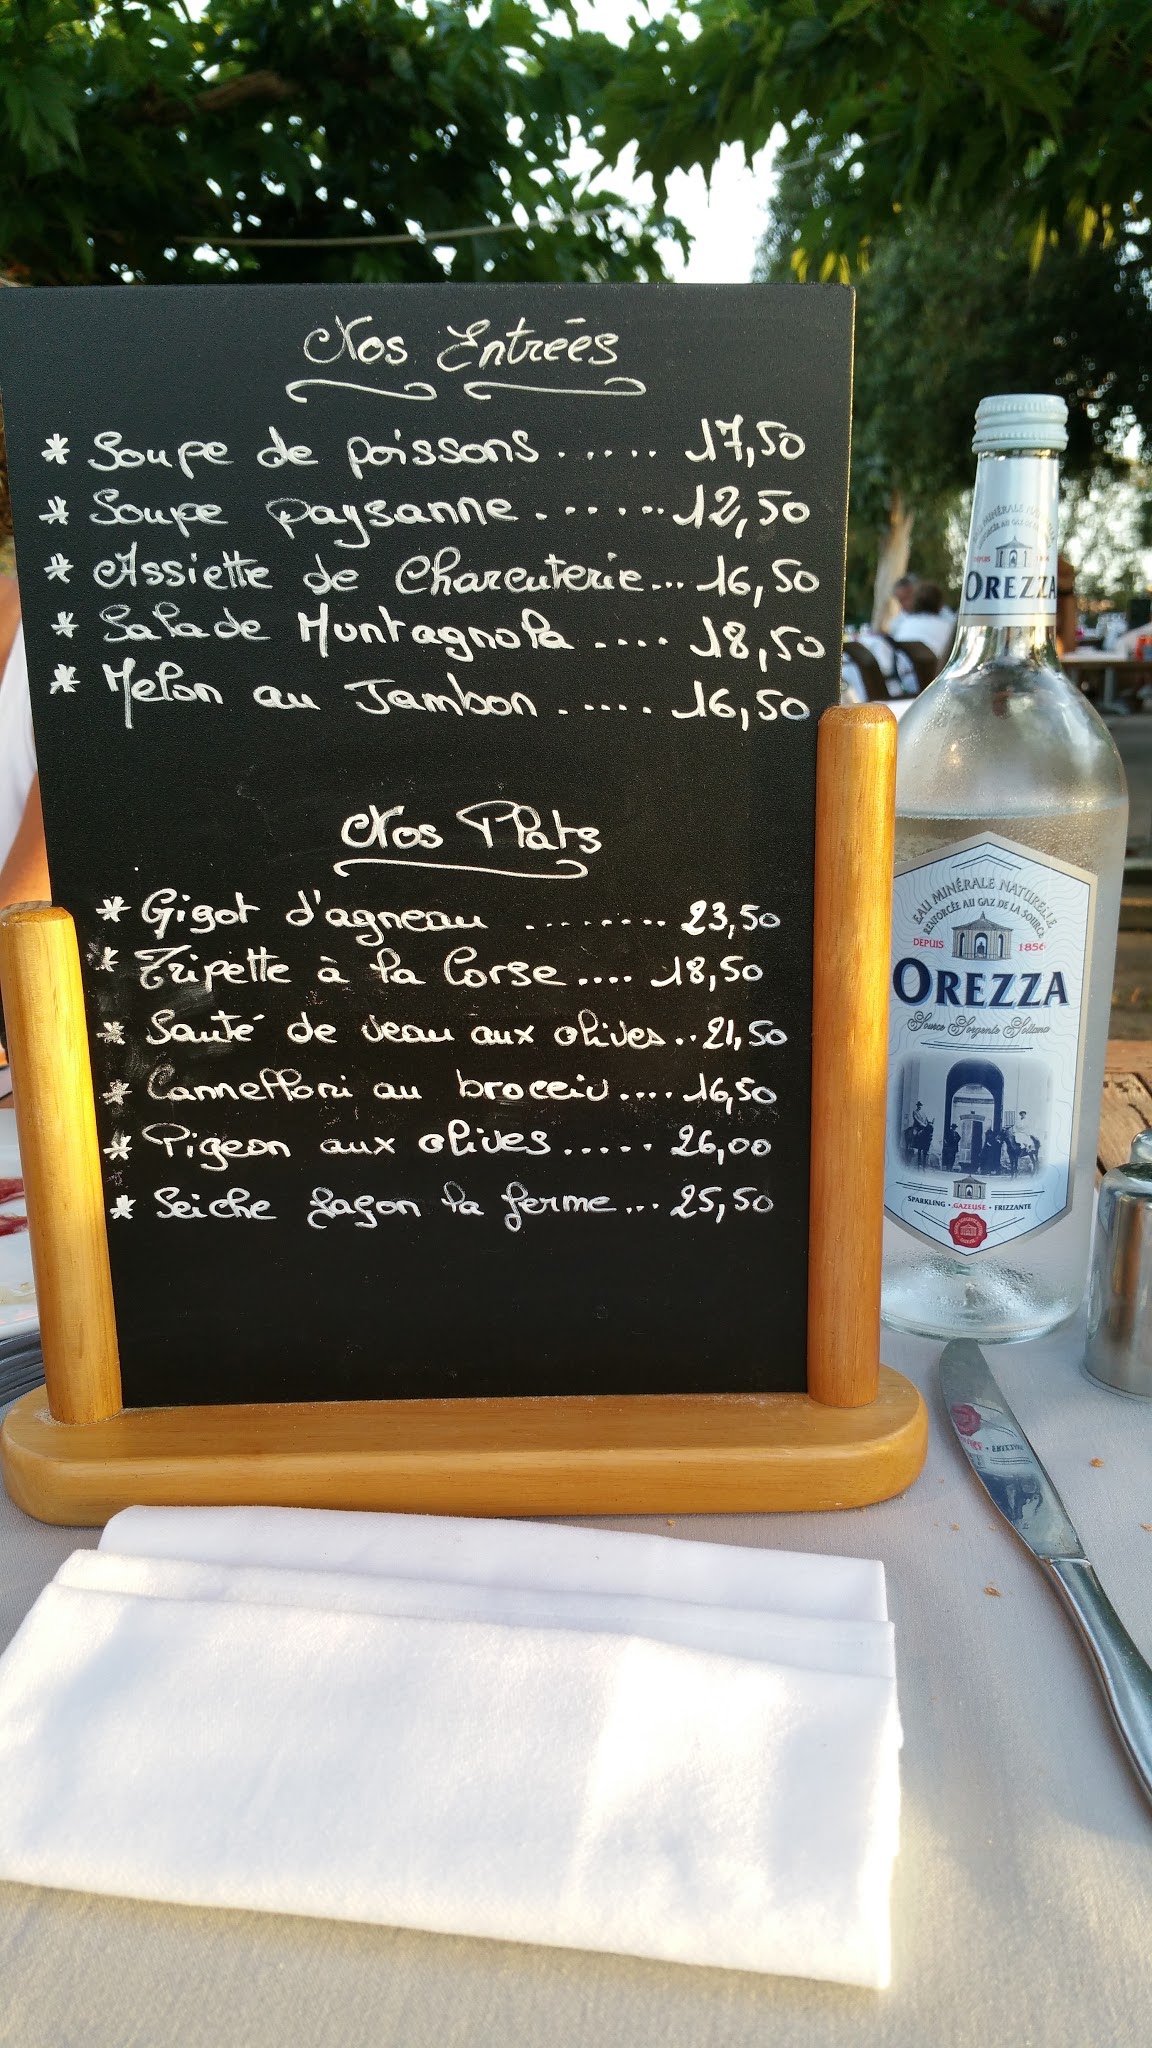 Nos Entrées
* Soupe de poissons ..... 17,50
* Soupe paysanne ....... 12,50
* Assiette de Charcuterie... 16,50
* Salade Muntagnola .... 18,50
* Melon au Jambon ..... 16,50
Nos Plats
* Gigot d'agneau ........ 23,50
* Tripette à la Corse .... 18,50
* Sauté de veau aux olives.. 21,50
* Cannelloni au brocciu .... 16,50
* Pigeon aux olives ..... 26,00
* Seiche façon la ferme ... 25,50
OREZZA
EAU MINÉRALE NATURELLE
RENFORCÉE AU GAZ DE LA SOURCE
DEPUIS 1856
OREZZA
Source Sorgente Sottana
SPARKLING • GAZEUSE • FRIZZANTE